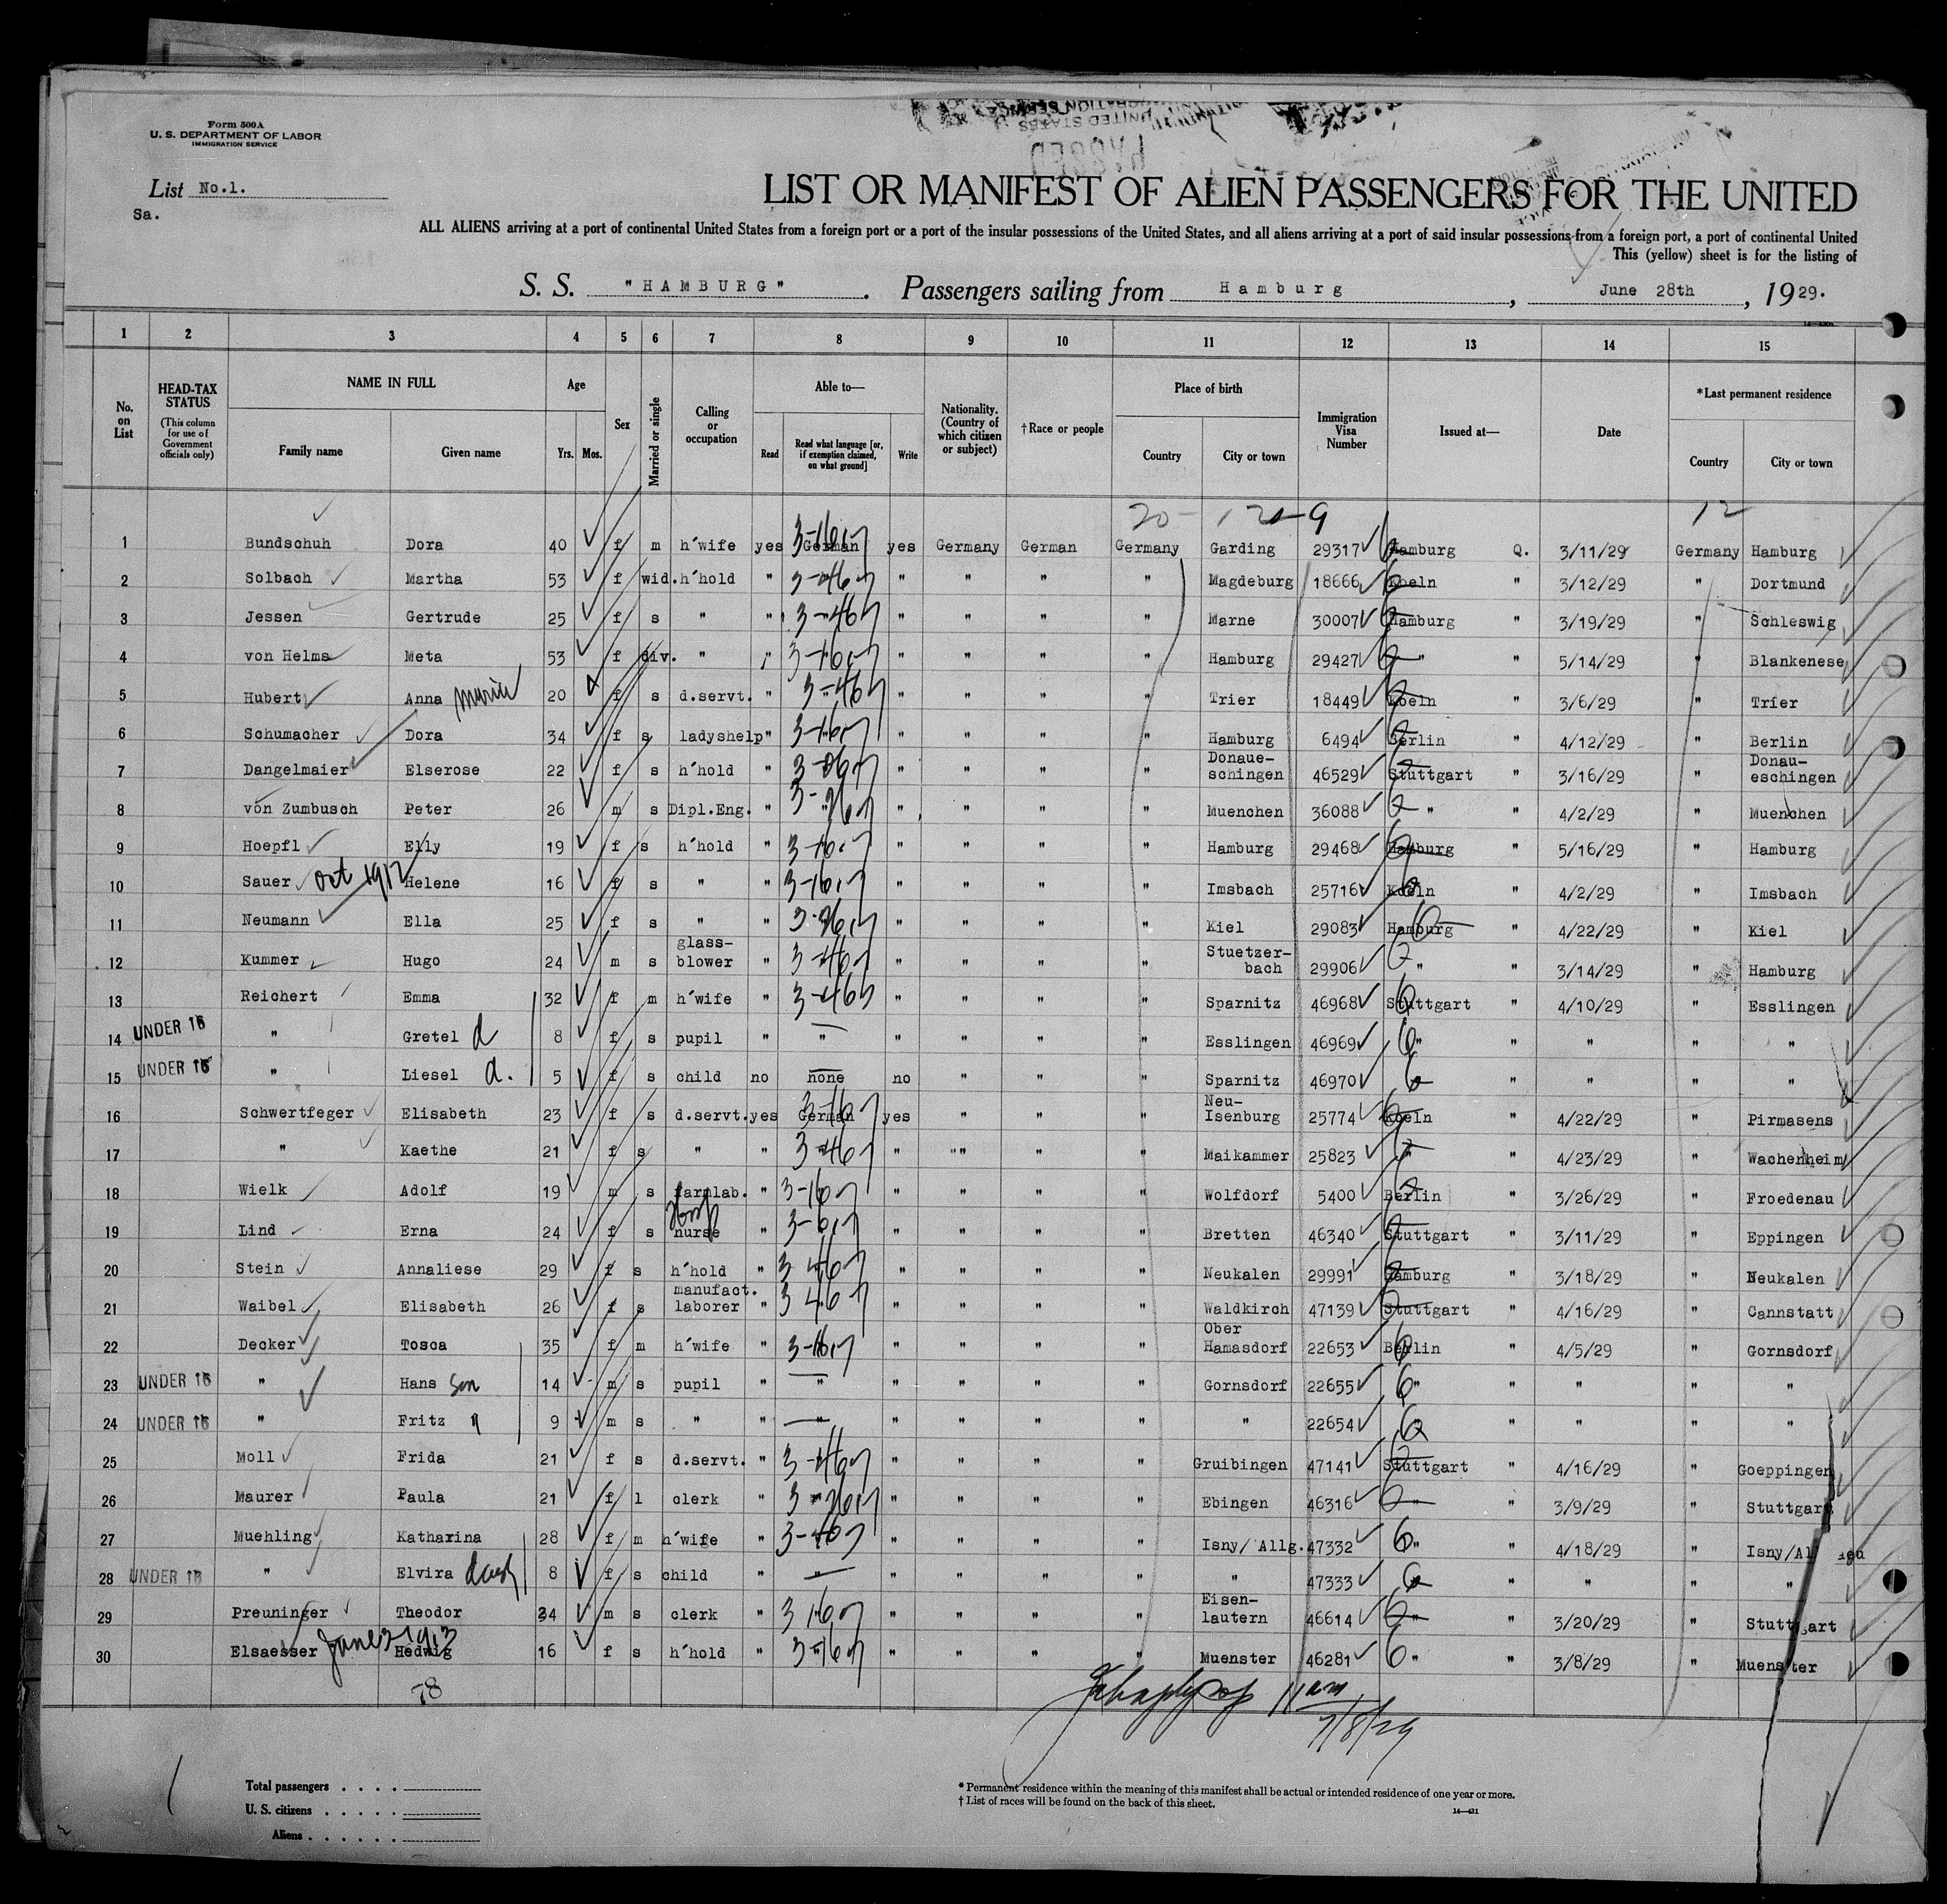 Form 500A
U. S. DEPARTMENT OF LABOR
IMMIGRATION SERVICE
List No.1.
Sa.
LIST OR MANIFEST OF ALIEN PASSENGERS FOR THE UNITED
ALL ALIENS arriving at a port of continental United States from a foreign port or a port of the insular possessions of the United States, and all aliens arriving at a port of said insular possessions from a foreign port, a port of continental United
This (yellow) sheet is for the listing of
S. S. "HAMBURG". Passengers sailing from Hamburg, June 28th, 1929.
1 2 3 4 5 6 7 8 9 10 11 12 13 14 15
No. on List
HEAD-TAX STATUS (This column for use of Government officials only)
NAME IN FULL
Family name Given name
Age
Yrs. Mos.
Sex
Married or single
Calling or occupation
Able to—
Read Read what language [or, if exemption claimed, on what ground] Write
Nationality. (Country of which citizen or subject)
†Race or people
Place of birth
Country City or town
Immigration Visa Number
Issued at—
Date
*Last permanent residence
Country City or town
20- 12
1 Bundschuh Dora 40 f m h'wife yes German yes Germany German Germany Garding 29317 Hamburg Q. 3/11/29 Germany Hamburg
2 Solbach Martha 53 f wid. h'hold " " " " " " Magdeburg 18666 Koeln " 3/12/29 " Dortmund
3 Jessen Gertrude 25 f s " " " " " " " Marne 30007 Hamburg " 3/19/29 " Schleswig
4 von Helms Meta 53 f div. " " " " " " " Hamburg 29427 " " 5/14/29 " Blankenese
5 Hubert Anna Marie 20 f s d.servt. " " " " " " Trier 18449 Koeln " 3/6/29 " Trier
6 Schumacher Dora 34 f s ladyshelp " " " " " " Hamburg 6494 Berlin " 4/12/29 " Berlin
7 Dangelmaier Elserose 22 f s h'hold " " " " " " Donaue-schingen 46529 Stuttgart " 3/16/29 " Donau-eschingen
8 von Zumbusch Peter 26 m s Dipl.Eng. " " " " " " Muenchen 36088 " " 4/2/29 " Muenchen
9 Hoepfl Elly 19 f s h'hold " " " " " " Hamburg 29468 Hamburg " 5/16/29 " Hamburg
10 Sauer Oct 1912 Helene 16 f s " " " " " " " Imsbach 25716 Koeln " 4/2/29 " Imsbach
11 Neumann Ella 25 f s " " " " " " " Kiel 29083 Hamburg " 4/22/29 " Kiel
12 Kummer Hugo 24 m s glass-blower " " " " " " Stuetzer-bach 29906 " " 3/14/29 " Hamburg
13 Reichert Emma 32 f m h'wife " " " " " " Sparnitz 46968 Stuttgart " 4/10/29 " Esslingen
14 UNDER 16 " Gretel d 8 f s pupil " " " " " " Esslingen 46969 " " " " "
15 UNDER 16 " Liesel d. 5 f s child no none no " " " Sparnitz 46970 " " " " "
16 Schwertfeger Elisabeth 23 f s d.servt. yes German yes " " " Neu-Isenburg 25774 Koeln " 4/22/29 " Pirmasens
17 " Kaethe 21 f s " " " " " " " Maikammer 25823 " " 4/23/29 " Wachenheim
18 Wielk Adolf 19 m s farmlab. " " " " " " Wolfdorf 5400 Berlin " 3/26/29 " Froedenau
19 Lind Erna 24 f s nurse " " " " " " Bretten 46340 Stuttgart " 3/11/29 " Eppingen
20 Stein Annaliese 29 f s h'hold " " " " " " Neukalen 29991 Hamburg " 3/18/29 " Neukalen
21 Waibel Elisabeth 26 f s manufact. laborer " " " " " " Waldkirch 47139 Stuttgart " 4/16/29 " Cannstatt
22 Decker Tosca 35 f m h'wife " " " " " " Ober Hamasdorf 22653 Berlin " 4/5/29 " Gornsdorf
23 UNDER 16 " Hans Son 14 m s pupil " " " " " " Gornsdorf 22655 " " " " "
24 UNDER 16 " Fritz " 9 m s " " " " " " " " 22654 " " " " "
25 Moll Frida 21 f s d.servt. " " " " " " Gruibingen 47141 Stuttgart " 4/16/29 " Goeppingen
26 Maurer Paula 21 f l clerk " " " " " " Ebingen 46316 " " 3/9/29 " Stuttgart
27 Muehling Katharina 28 f m h'wife " " " " " " Isny/Allg. 47332 " " 4/18/29 " Isny/
28 UNDER 16 " Elvira daug 8 f s child " " " " " " " 47333 " " " " "
29 Preuninger Theodor 34 m s clerk " " " " " " Eisen-lautern 46614 " " 3/20/29 " Stuttgart
30 Elsaesser June 3 1913 Hedwig 16 f s h'hold " " " " " " Muenster 46281 " " 3/8/29 " Muenster
78
11 am
7/8/29
Total passengers
U. S. citizens
Aliens
* Permanent residence within the meaning of this manifest shall be actual or intended residence of one year or more.
† List of races will be found on the back of this sheet.
14—431